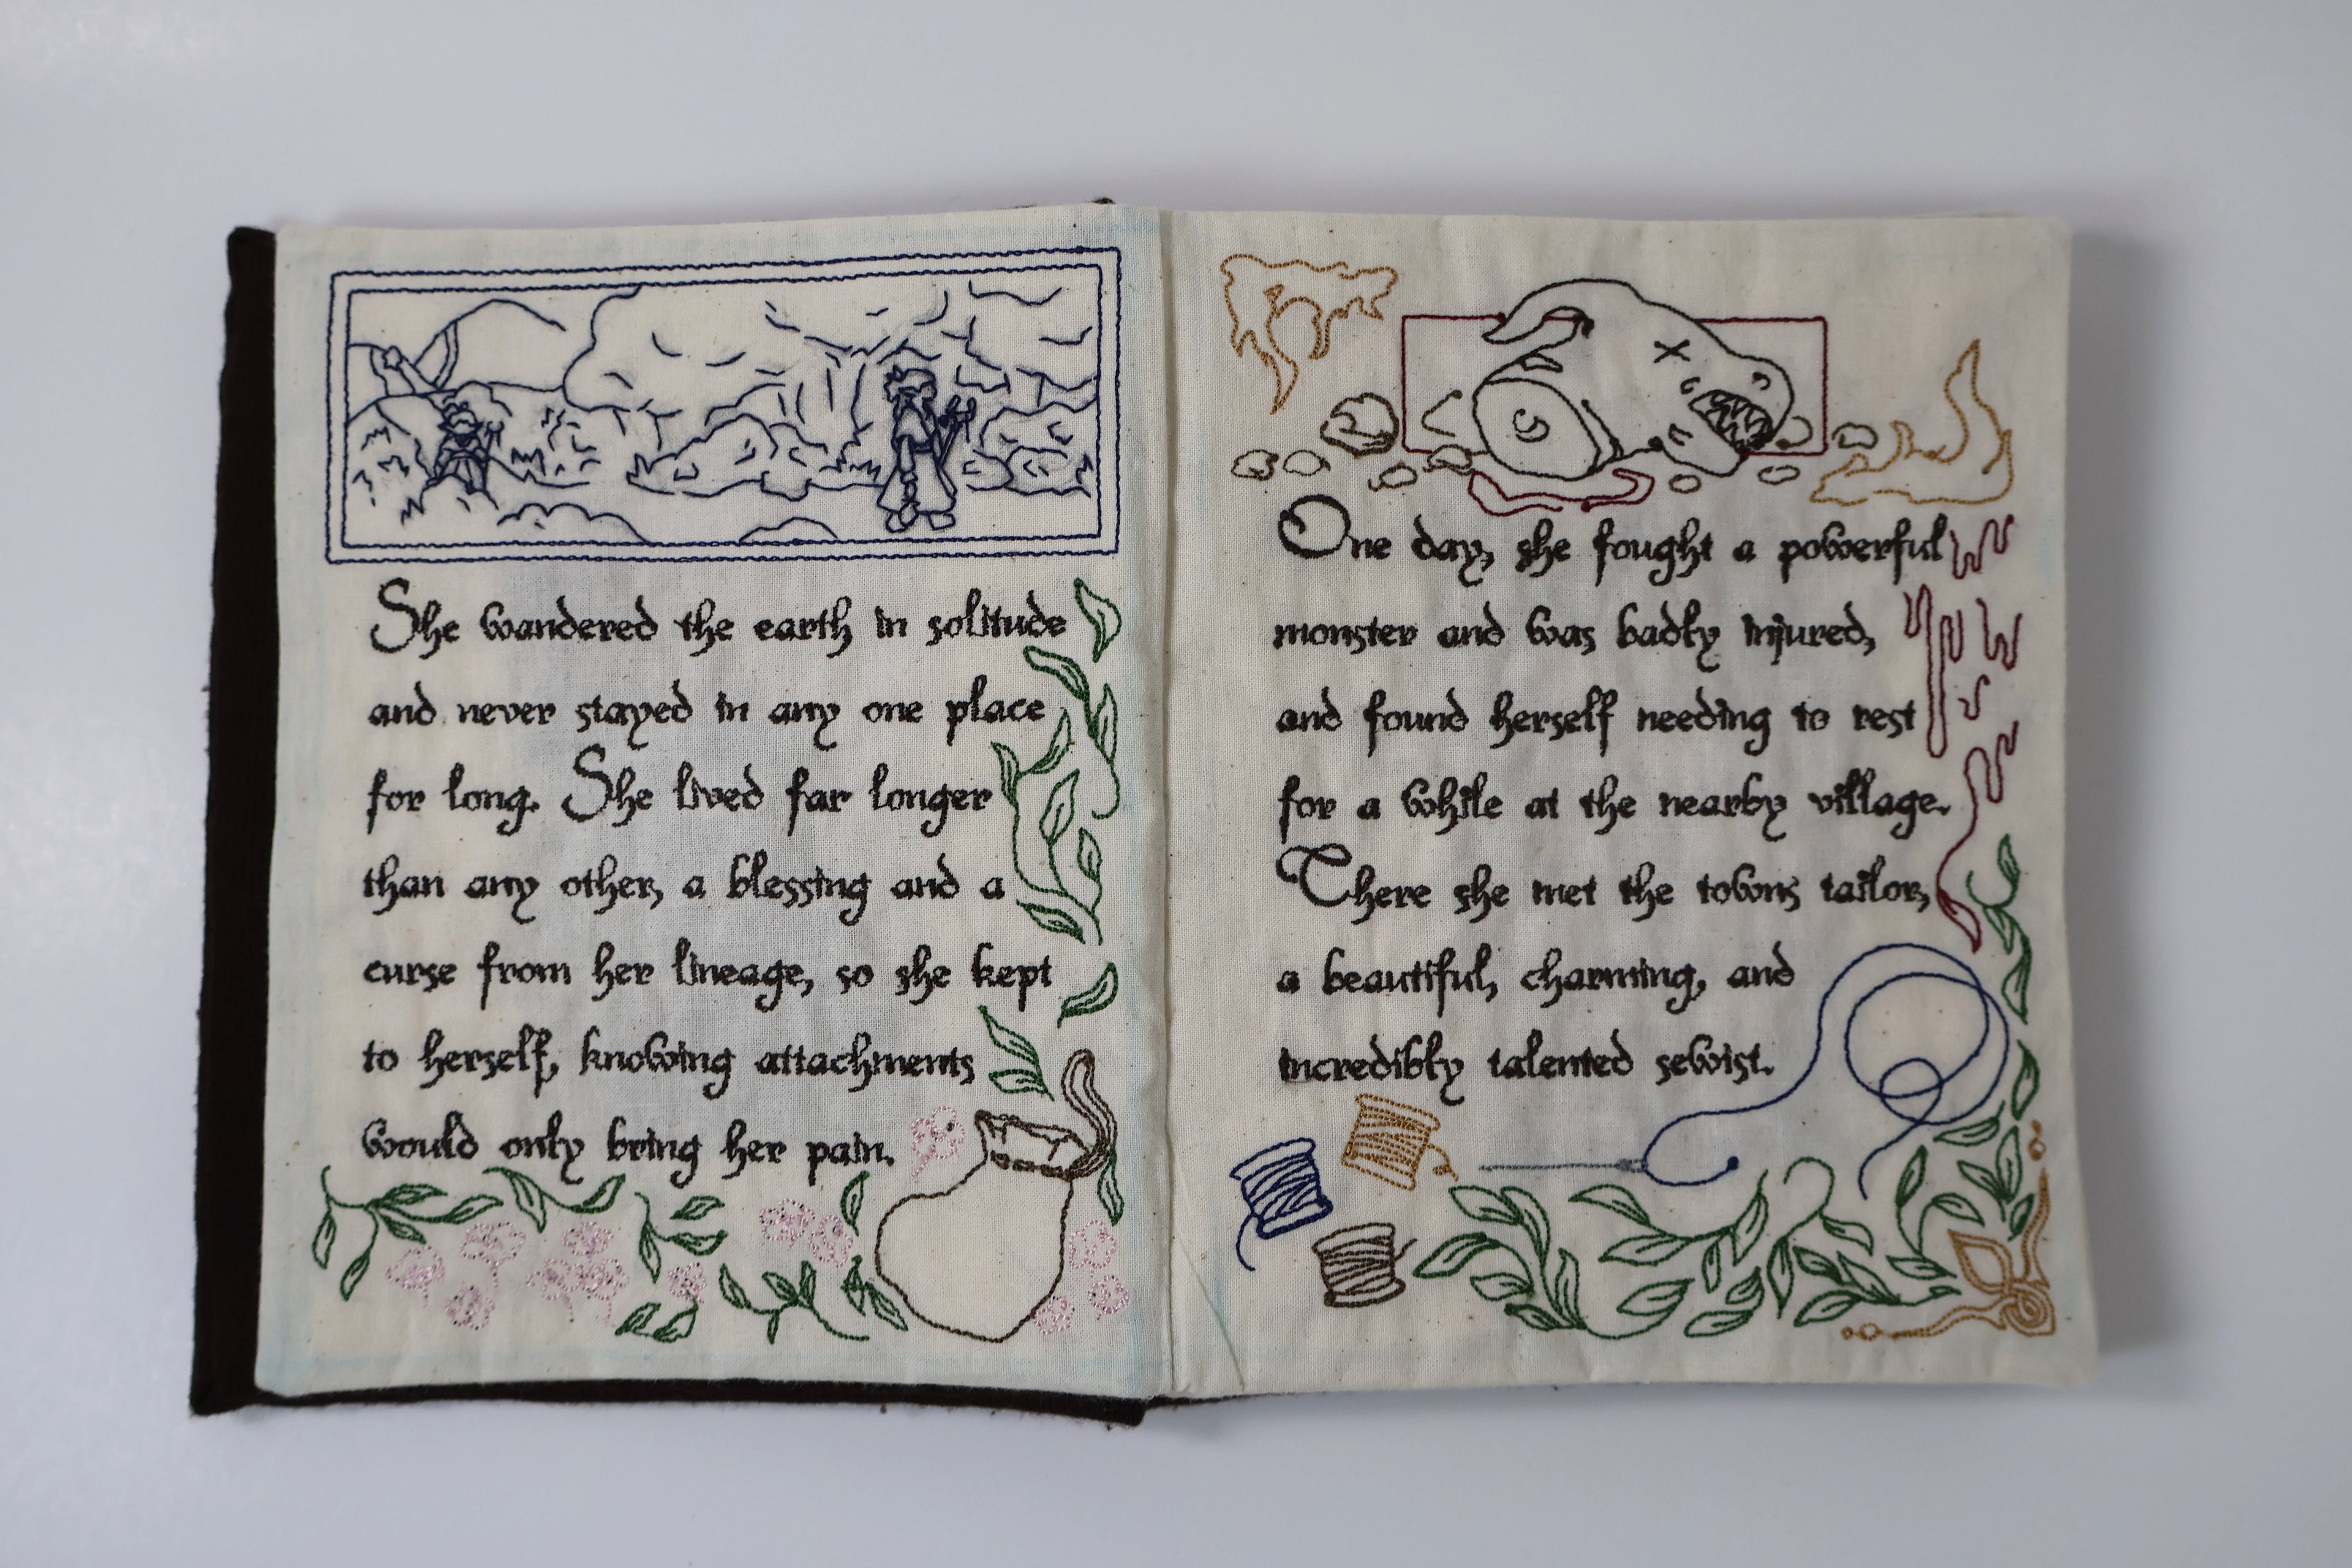 She wandered the earth in solitude
and never stayed in any one place
for long. She lived far longer
than any other, a blessing and a
curse from her lineage, so she kept
to herself, knowing attachments
would only bring her pain.
One day, she fought a powerful
monster and was badly injured,
and found herself needing to rest
for a while at the nearby village.
There she met the towns tailor,
a beautiful, charming, and
incredibly talented sewist.